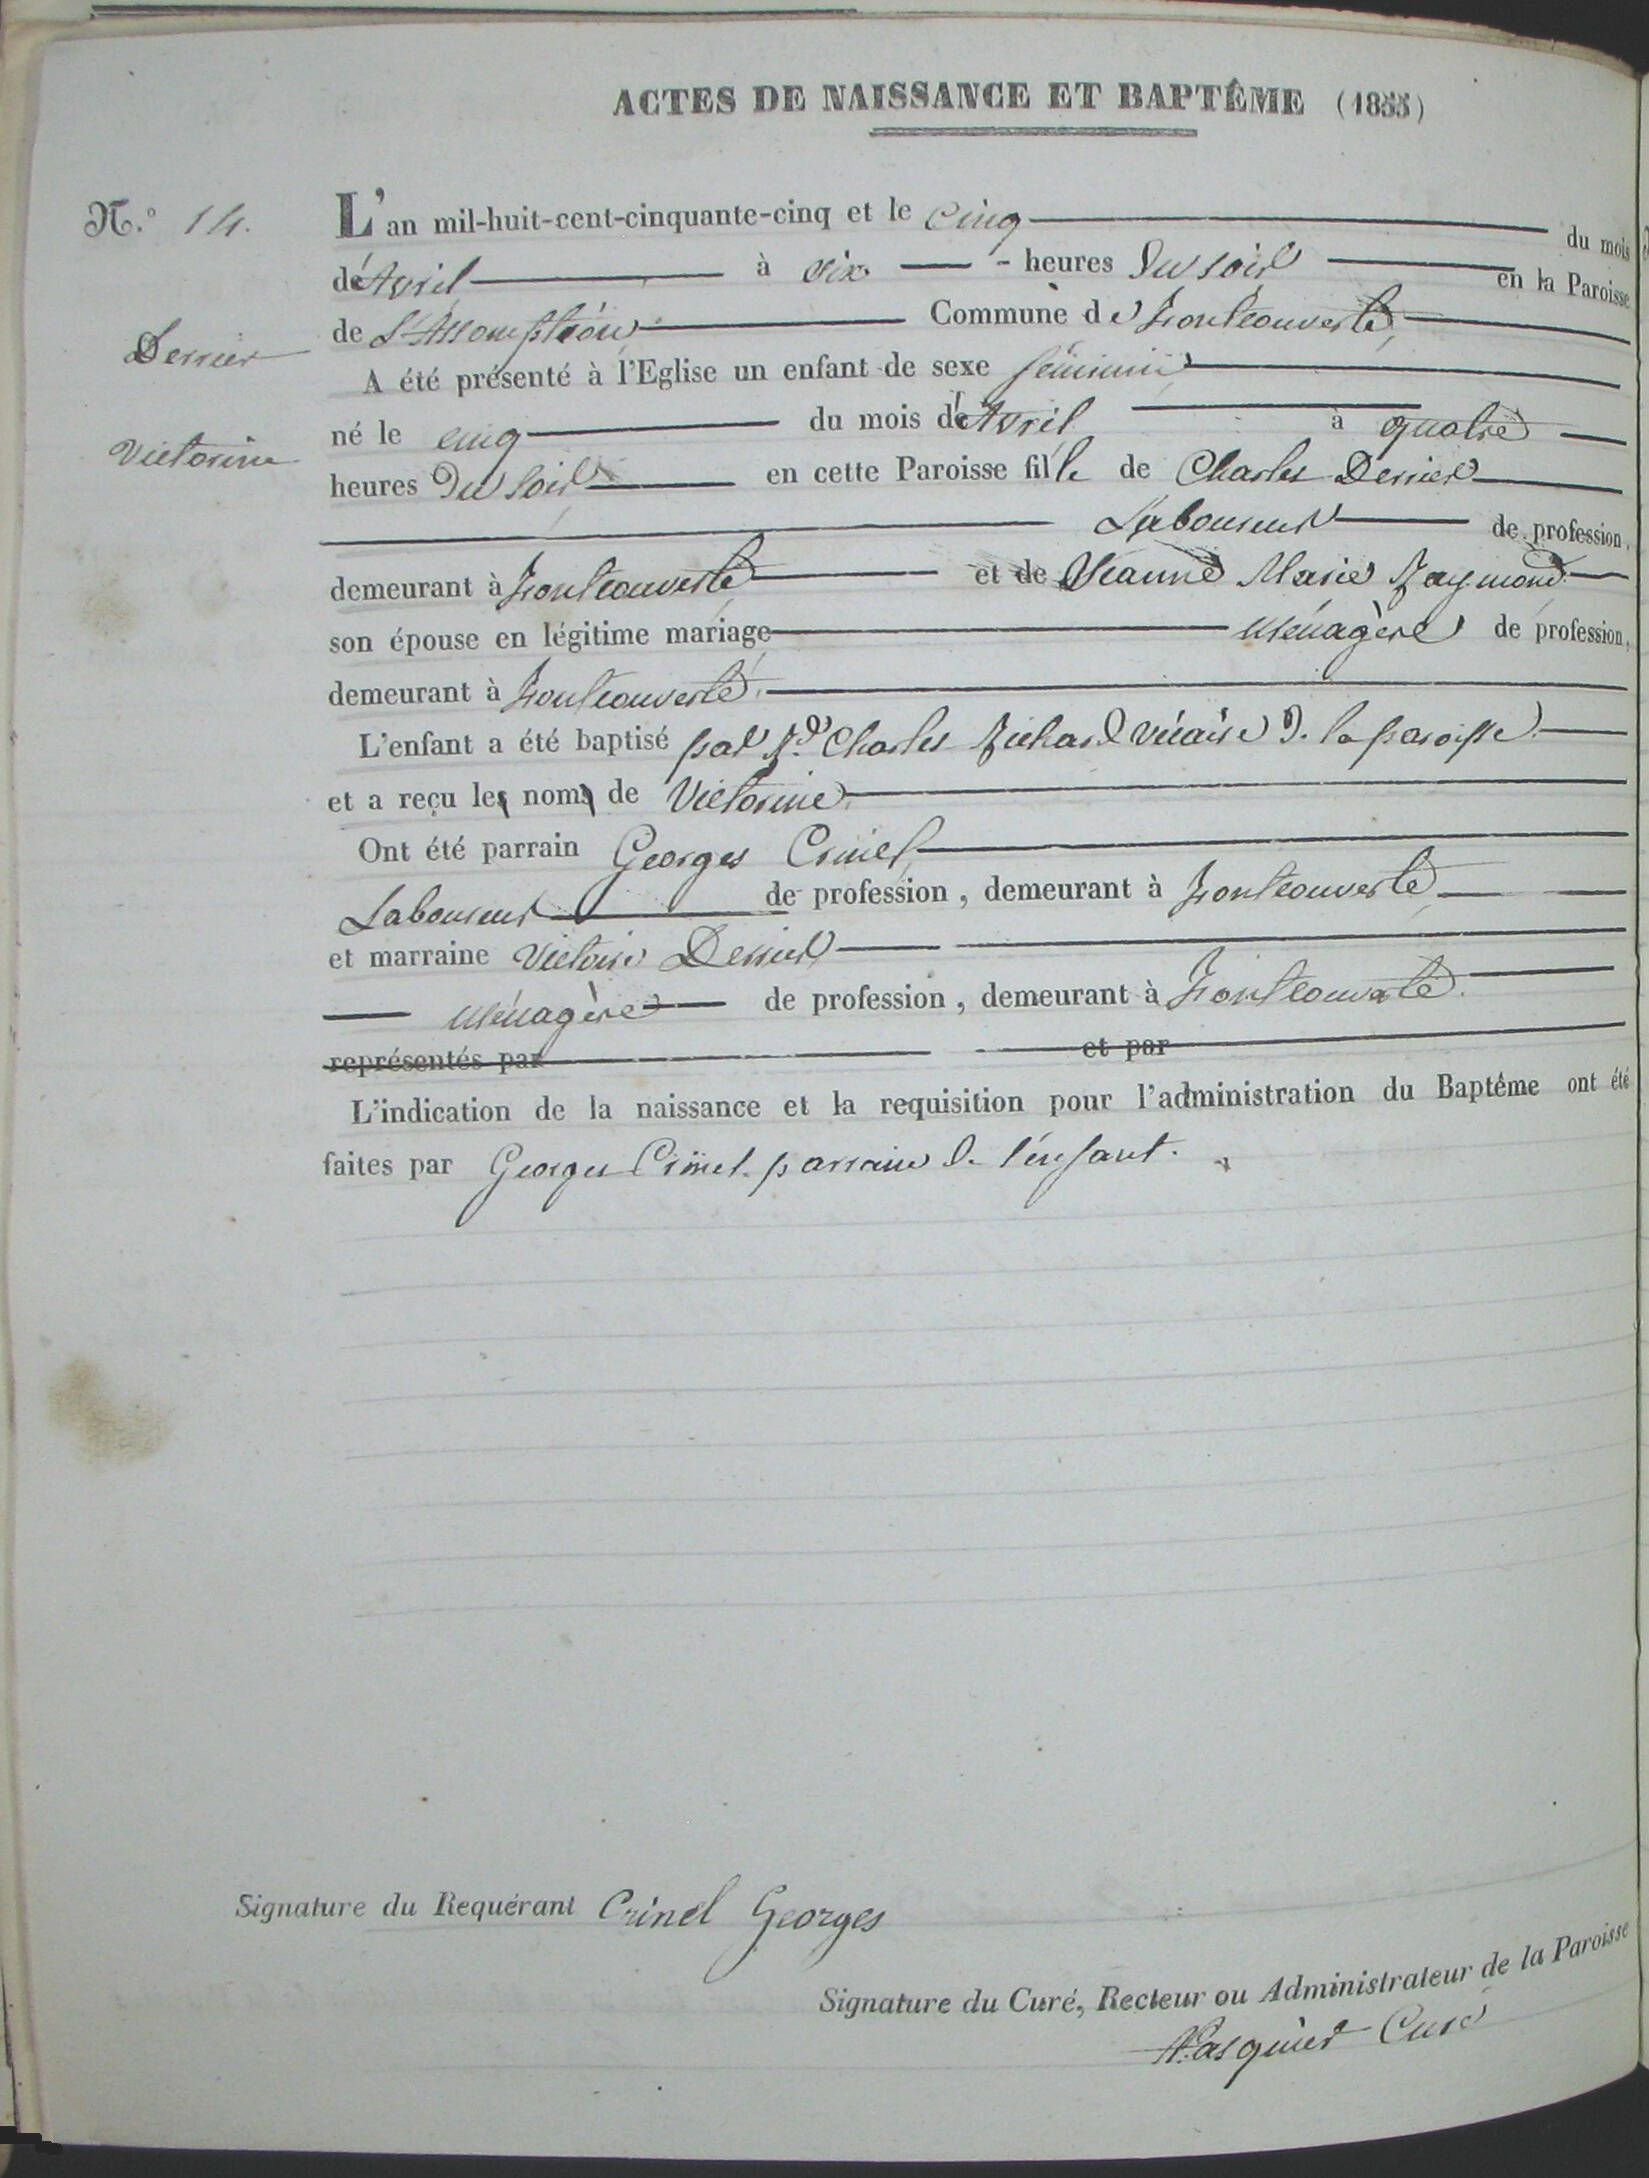 ACTES DE NAISSANCE ET BAPTÊME (1855)
N.º 14.
Dernier
Victorine
L'an mil-huit-cent-cinquante-cinq et le cinq du mois
d'Avril à six heures du soir en la Paroisse
de L'Assomption Commune de Fontcouverte,
A été présenté à l'Eglise un enfant de sexe féminin
né le cinq du mois d'Avril à quatre
heures du soir en cette Paroisse fille de Charles Dernier
Laboureur de profession,
demeurant à Fontcouverte et de Jeanne Marie Raymond
son épouse en légitime mariage ménagère de profession,
demeurant à Fontcouverte.
L'enfant a été baptisé par Rd Charles Richard vicaire d. la paroisse.
et a reçu le nom de Victorine.
Ont été parrain Georges Crinel,
Laboureur de profession, demeurant à Fontcouverte
et marraine Victoire Dernier
ménagère de profession, demeurant à Fontcouverte.
représentés par et par
L'indication de la naissance et la requisition pour l'administration du Baptême ont été
faites par Georges Crinel. parrain d. l'enfant.
Signature du Requérant Crinel Georges
Signature du Curé, Recteur ou Administrateur de la Paroisse
Pasquier Curé